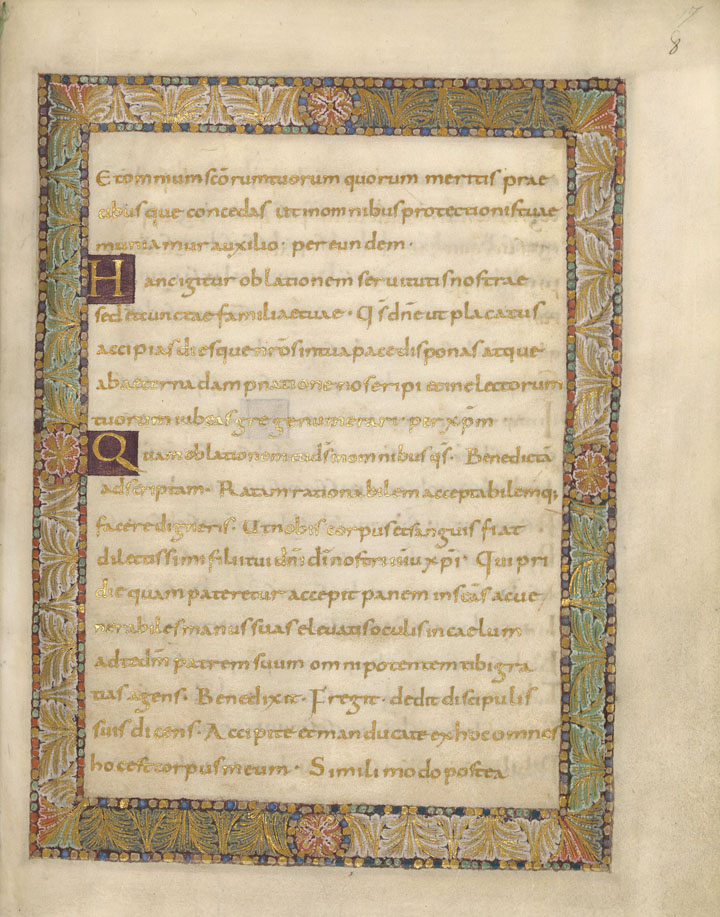 8
Et omnium scōrum tuorum quorum meritis prae
cibusque concedas ut in omnibus protectionis tuae
muniamur auxilio · per eundem ·
Hanc igitur oblationem seruitutis nostrae
sed et cunctae familiae tuae · Q̄s dn̄e ut placatus
accipias diesque nr̄os in tua pace disponas atque
ab aeterna dampnatione nos eripi et in electorum
tuorum iubeas grege numerari · per xp̄m
Quam oblationem tu ds̄ in omnibus q̄s · Benedictā
adscriptam · Ratam rationabilem acceptabilemq;
facere digneris · Ut nobis corpus et sanguis fiat
dilectissimi filii tui dn̄i dī nostri ihū xp̄i · Qui pri
die quam pateretur accepit panem in scās ac ue
nerabiles manus suas eleuatis oculis in caelum
ad te dm̄ patrem suum omnipotentem tibi gra
tias agens · Benedixit · Fregit · dedit discipulis
suis dicens · Accipite et manducate ex hoc omnes
hoc est corpus meum · Simili modo postea